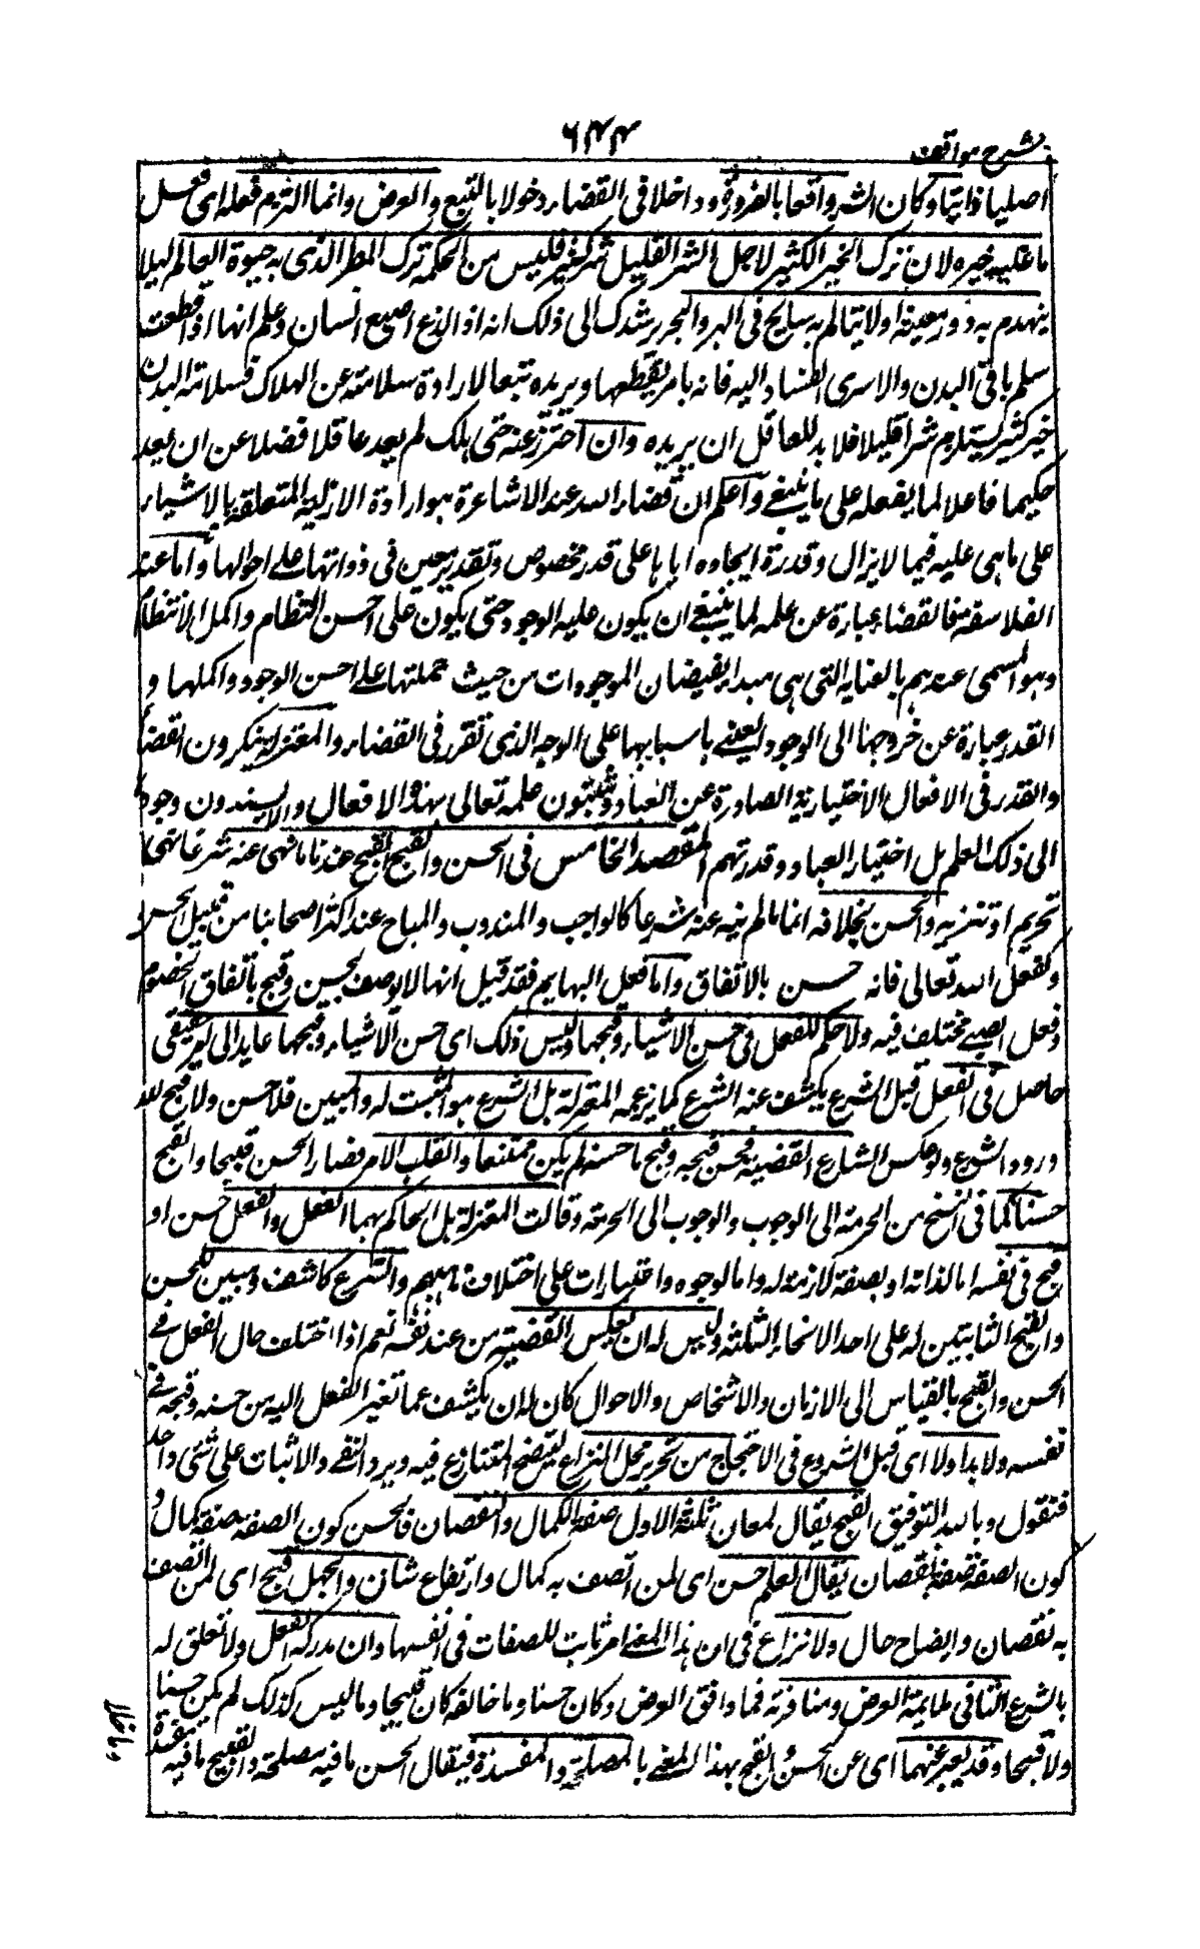 شرح مواقف
۶۴۴
اصليا ذاتيا وكان الشر واقعا بالضرورة وداخلا فى القضاء دخولا بالتبع والعرض وانما التزم فعله اى فعل
ما غلب خيره لان ترك الخير الكثير لاجل الشر القليل شر كثير فليس من الحكمة ترك المطر الذى به حيوة العالم لئلا
ينهدم به دور معينة اولا يتالم به سابح فى البر والبحر يرشدك الى ذلك انه اذا لذع اصبع انسان وعلم انها اذا قطعت
سلم باقى البدن والا سرى الفساد اليه فانه يامر بقطعها ويريده تبعا لارادة سلامته عن الهلاك فسلامة البدن
خير كثير يستلزم شرا قليلا فلا بد للعاقل ان يريده وان احترز عنه حتى هلك لم يعد عاقلا فضلا عن ان يعد
حكيما فاعلا لما يفعله على ما ينبغى واعلم ان قضاء الله عند الاشاعرة هو ارادة الازلية المتعلقة بالاشياء
على ما هى عليه فيما لا يزال وقدرة ايجاده اياها على قدر مخصوص وتقدير معين فى ذواتها على احوالها واما عند
الفلاسفة فالقضاء عبارة عن علمه لما ينبغى ان يكون عليه الوجود حتى يكون على احسن النظام واكمل الانتظام
وهو المسمى عندهم بالعناية التى هى مبدا لفيضان الموجودات من حيث جملتها على احسن الوجوه واكملها و
القدر عبارة عن خروجها الى الوجود العينى باسبابها على الوجه الذى تقرر فى القضاء والمعتزلة ينكرون القضاء
والقدر فى الافعال الاختيارية الصادرة عن العباد ويثبتون علمه تعالى بهذه الافعال ولا يسندون وجودها
الى ذلك العلم بل اختيار العباد وقدرتهم المقصد الخامس فى الحسن والقبح القبيح عندنا ما نهى عنه شرعا نهى
تحريم او تنزيه والحسن بخلافه اى ما لم ينه عنه شرعا كالواجب والمندوب والمباح عند اكثر اصحابنا من قبيل الحسن
وكفعل الله تعالى فانه حسن بالاتفاق واما فعل البهايم فقد قيل انها لا يوصف بحسن وقبح باتفاق الخصوم
وفعل الصبى مختلف فيه ولا حكم للعقل فى حسن الاشياء وقبحها وليس ذلك اى حسن الاشياء وقبحها عايدا الى امر حقيقى
حاصل فى الفعل قبل الشرع يكشف عنه الشرع كما يزعمه المعتزلة بل الشرع هو المثبت له والمبين فلا حسن ولا قبح قبل
ورود الشرع ولو عكس الشارع القضية فحسن ما قبحه وقبح ما حسنه لم يكن ممتنعا وانقلب الامر فصار الحسن قبيحا والقبيح
حسنا كما فى النسخ من الحرمة الى الوجوب والوجوب الى الحرمة وقالت المعتزلة بل الحاكم بهما العقل والفعل حسن او
قبيح فى نفسه اما لذاته او بصفة لازمة له واما لوجوه واعتبارات على اختلاف مذاهبهم والشرع كاشف ومبين للحسن
والقبح الثابتين له على احد الانحاء الثلثة وليس له ان يعكس القضية من عند نفسه نعم اذا اختلف حال الفعل فى
الحسن والقبح بالقياس الى الازمان والاشخاص والاحوال كان له ان يكشف عما تغير الفعل اليه من حسنه وقبحه فى
نفسه ولا بد اولا اى قبل الشروع فى الاحتجاج من تحرير محل النزاع ليتضح المتنازع فيه ويرد النفى والاثبات على شئ واحد
فنقول وبالله التوفيق القبح يقال لمعان ثلثة الاول صفة الكمال والنقصان فالحسن كون الصفة صفة كمال و
كون الصفة صفة نقصان يقال العلم حسن اى لمن اتصف به كمال وارتفاع شان والجهل قبيح اى لمن اتصف
به نقصان وايضاح حال ولا نزاع فى ان هذا المعنى امر ثابت للصفات فى انفسها وان مدركه العقل ولا تعلق له
بالشرع الثانى ملايمة الغرض ومنافرته فما وافق الغرض كان حسنا وما خالفه كان قبيحا وما ليس كذلك لم يكن حسنا
ولا قبيحا وقد يعبر عنهما اى عن الحسن والقبح بهذا المعنى بالمصلحة والمفسدة فيقال الحسن ما فيه مصلحة والقبيح ما فيه مفسدة
وما خلا